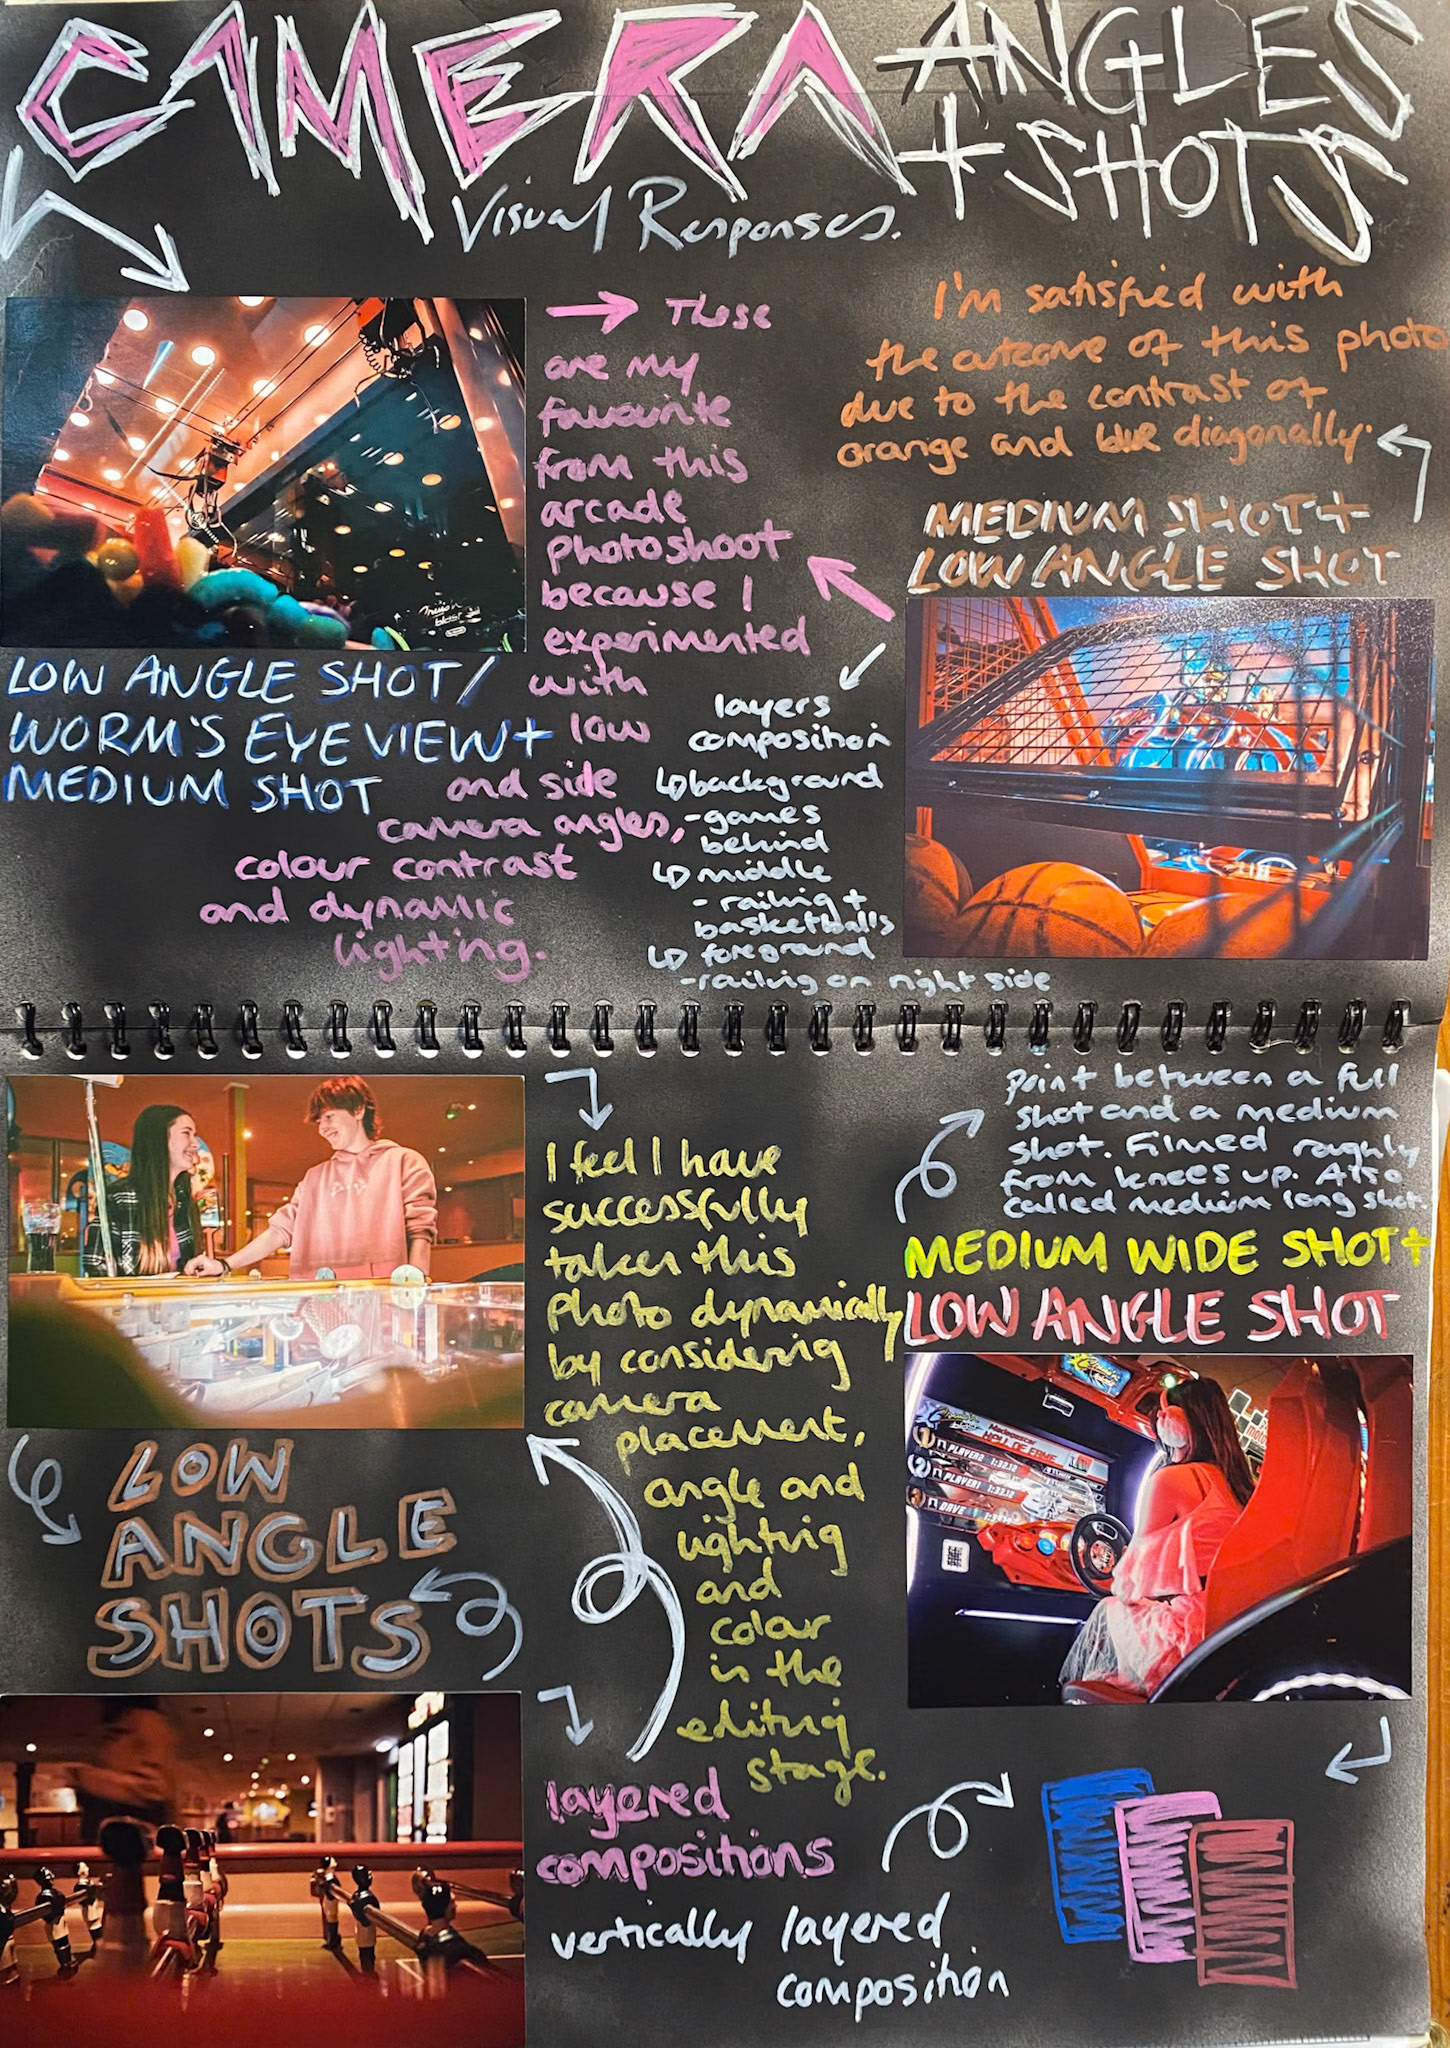 CAMERA ANGLES
+ SHOTS
Visual Responses.
→ These
are my
favourite
from this
arcade
photoshoot
because I
experimented
with
low
and side
camera angles,
colour contrast
and dynamic
lighting.
I'm satisfied with
the outcome of this photo
due to the contrast of
orange and blue diagonally.
MEDIUM SHOT +
LOW ANGLE SHOT
LOW ANGLE SHOT/
WORM'S EYE VIEW +
MEDIUM SHOT
layers
composition
↳ background
- games
behind
↳ middle
- railing +
basketballs
↳ foreground
- railing on right side
I feel I have
successfully
taken this
photo dynamically
by considering
camera
placement,
angle and
lighting
and
colour
in the
editing
stage.
point between a full
shot and a medium
shot. Filmed roughly
from knees up. Also
called medium long shot.
MEDIUM WIDE SHOT +
LOW ANGLE SHOT
HALL OF FAME
1 PLAYER2 1:32.12
2 PLAYER1 1:33.12
DAVE
LOW
ANGLE
SHOTS
layered
compositions
vertically layered
composition